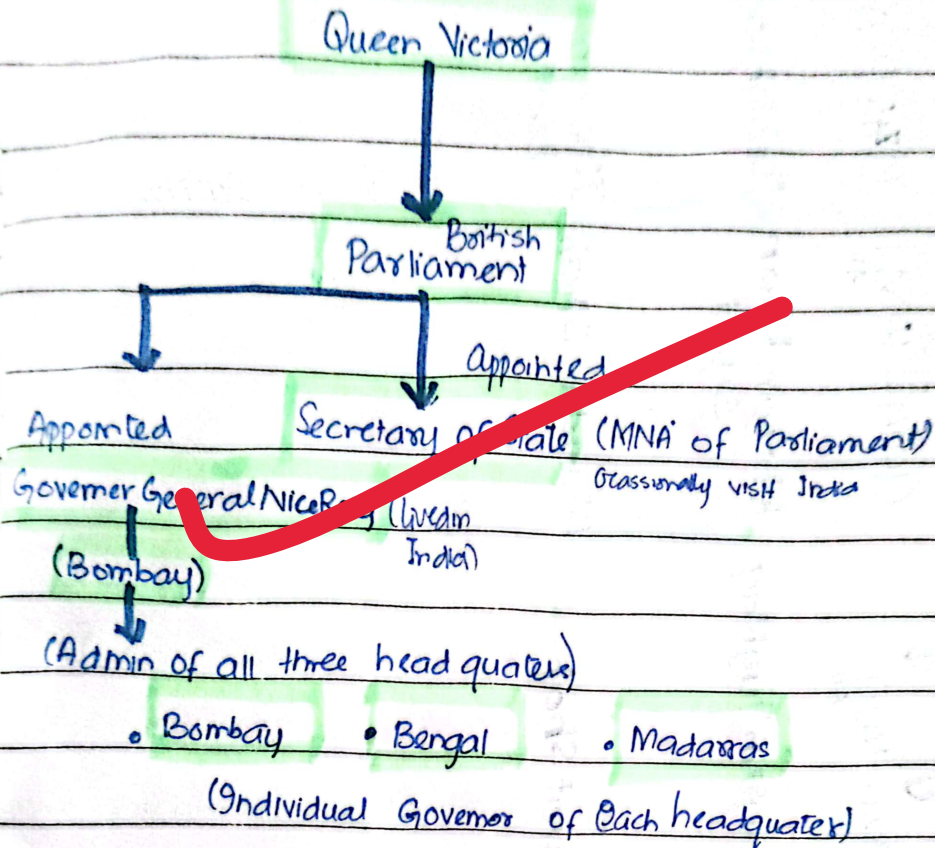 Queen Victoria
British
Parliament
Appointed
Appointed
Secretary of State (MNA of Parliament)
Ocassionally visit India
Governer General (lived in
India)
(Bombay)
(Admin of all three head quaters)
• Bombay • Bengal • Madarras
(Individual Governor of Each headquater)